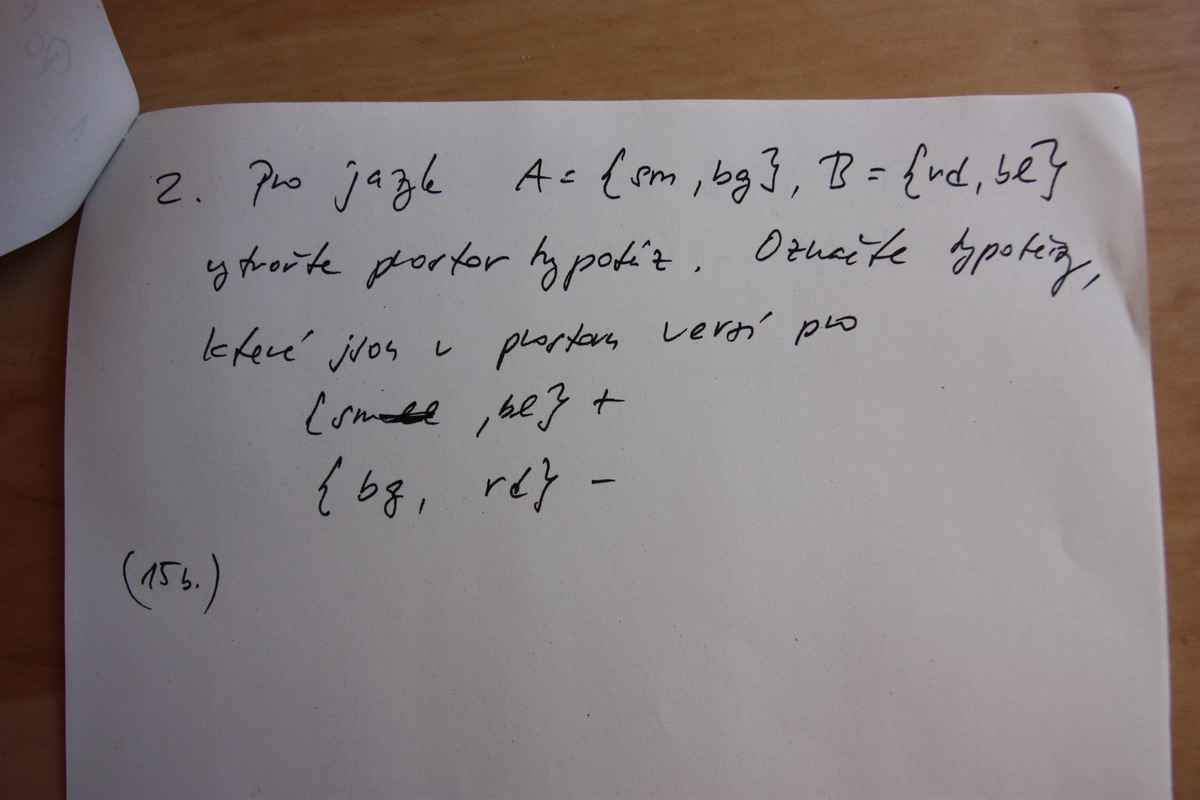 2. Pro jazyk A = {sm, bg}, B = {rd, bl}
vytvořte prostor hypotéz. Označte hypotézy,
které jsou v prostoru verzí pro
{sm, bl} +
{bg, rd} -
(15b.)